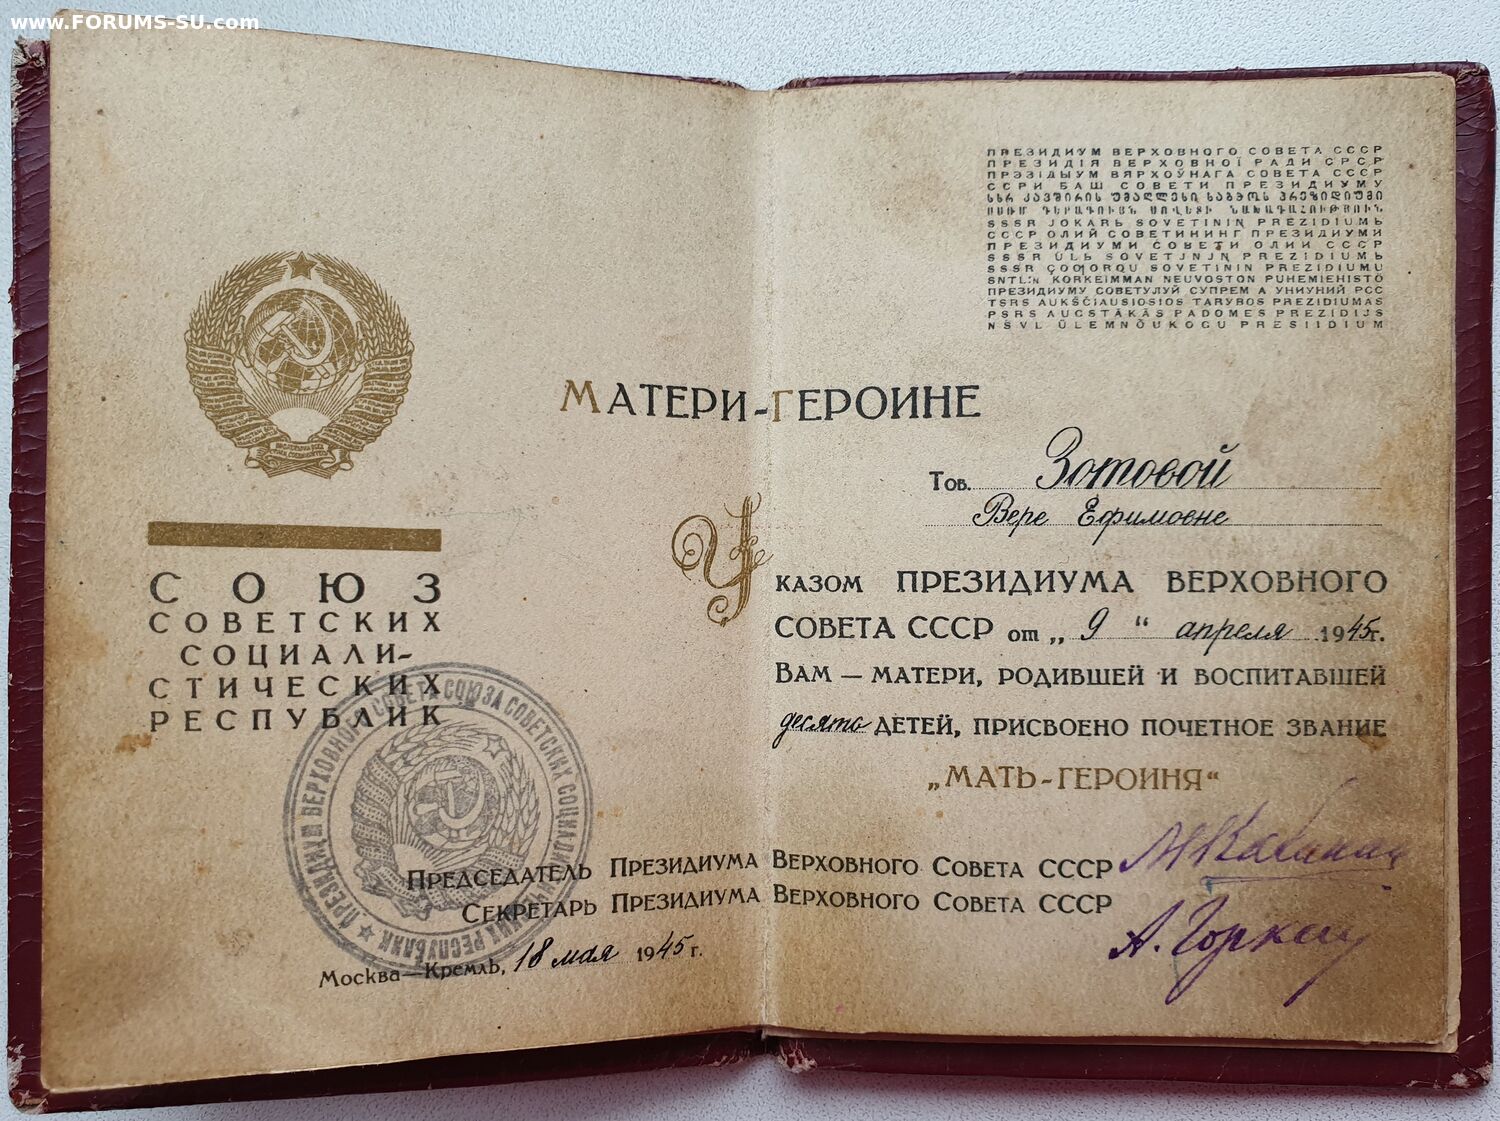 www.FORUMS-SU.com
СОЮЗ
СОВЕТСКИХ
СОЦИАЛИ-
СТИЧЕСКИХ
РЕСПУБЛИК
ПРЕЗИДИУМ ВЕРХОВНОГО СОВЕТА СССР
ПРЕЗИДІЯ ВЕРХОВНОЇ РАДИ СРСР
ПРЭЗІДЫУМ ВЯРХОЎНАГА СОВЕТА СССР
ССРИ БАШ СОВЕТИ ПРЕЗИДИУМУ
SSSR JOKARЬ SOVETININ PREZIDIUMЬ
СССР ОЛИЙ СОВЕТИНИНГ ПРЕЗИДИУМИ
ПРЕЗИДИУМИ СОВЕТИ ОЛИИ СССР
SSSR ÇOƢORQU SOVETININ PREZIDIUMU
SNTL:n KORKEIMMAN NEUVOSTON PUHEMIEHISTÖ
ПРЕЗИДИУМУ СОВЕТУЛУЙ СУПРЕМ А УНИУНИЙ РСС
TSRS AUKŠČIAUSIOSIOS TARYBOS PREZIDIUMAS
PSRS AUGSTĀKĀS PADOMES PREZIDIJS
NSVL ÜLEMNÕUKOGU PRESIIDIUM
МАТЕРИ-ГЕРОИНЕ
Тов. Зотовой
Вере Ефимовне
УКАЗОМ ПРЕЗИДИУМА ВЕРХОВНОГО
СОВЕТА СССР от „ 9 “ апреля 1945г.
ВАМ — МАТЕРИ, РОДИВШЕЙ И ВОСПИТАВШЕЙ
десять ДЕТЕЙ, ПРИСВОЕНО ПОЧЕТНОЕ ЗВАНИЕ
„МАТЬ-ГЕРОИНЯ“
Председатель Президиума Верховного Совета СССР М Калинин
Секретарь Президиума Верховного Совета СССР
А. Горкин
Москва—Кремль, 18 мая 1945 г.
ПРЕЗИДИУМ ВЕРХОВНОГО СОВЕТА СОЮЗА СОВЕТСКИХ СОЦИАЛИСТИЧЕСКИХ РЕСПУБЛИК